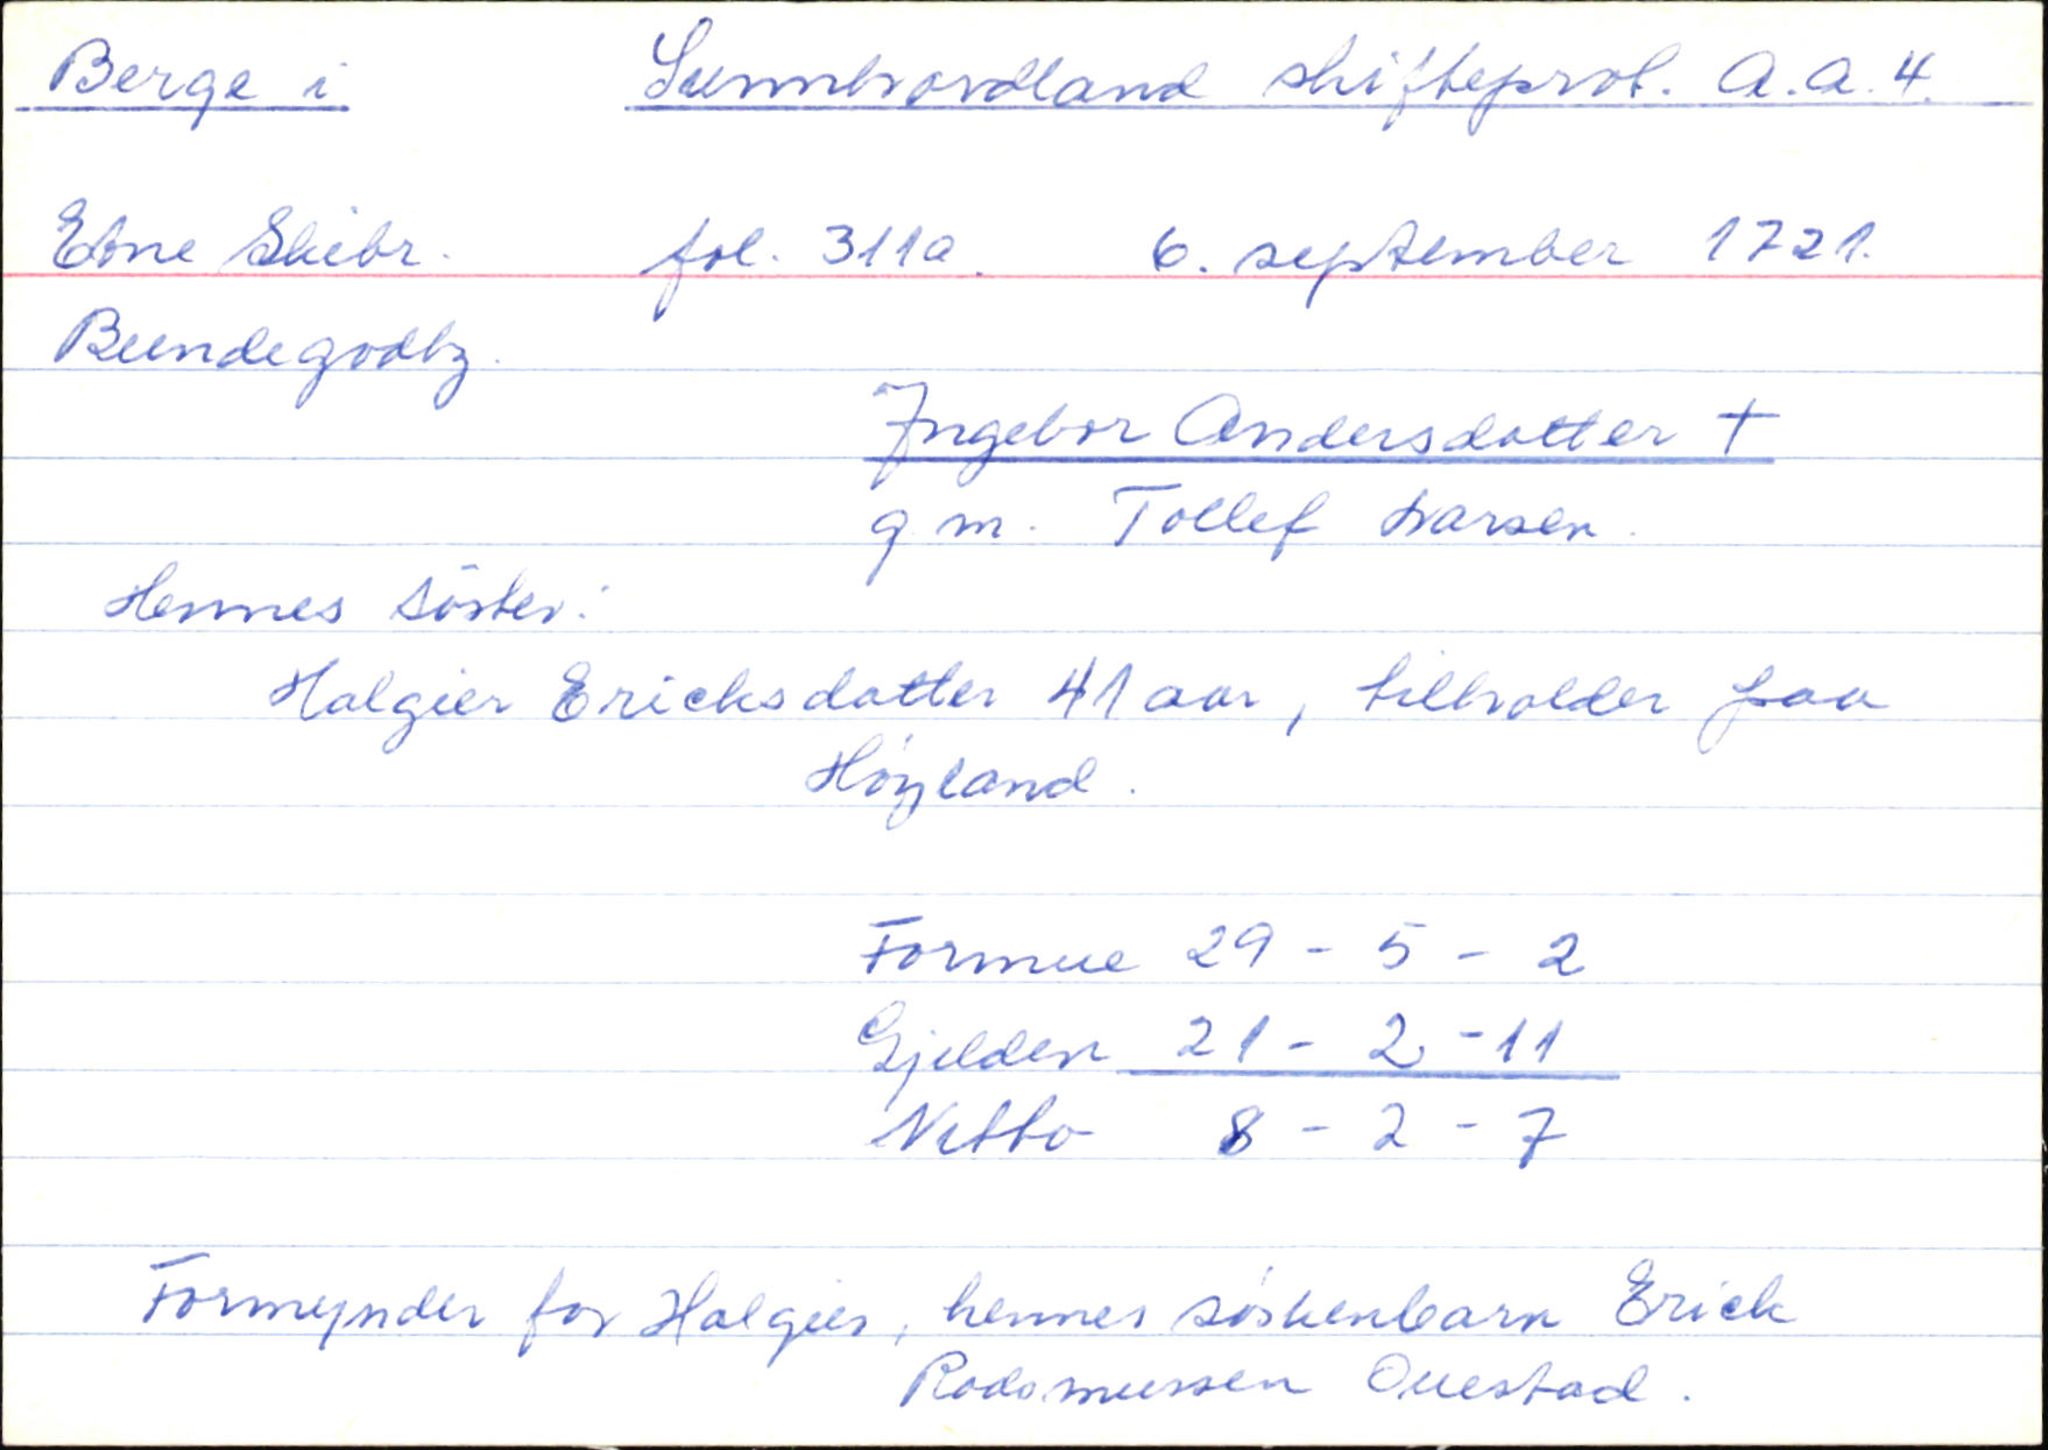 Berge i Sunnhordland skifteprot. A.a.4.
Etne Skibr. fol. 311a. 6. september 1721.
Bundegodtz.
Ingebor Andersdatter †
g.m. Tollef Larsen.
Hennes söster:
Halgier Ericksdatter 41 aar, tilholder paa
Höyland.
Formue 29 - 5 - 2
Gjelden 21 - 2 - 11
Netto 8 - 2 - 7
Formynder for Halgier, hennes söskenbarn Erick
Rodsmussen Ouestad.